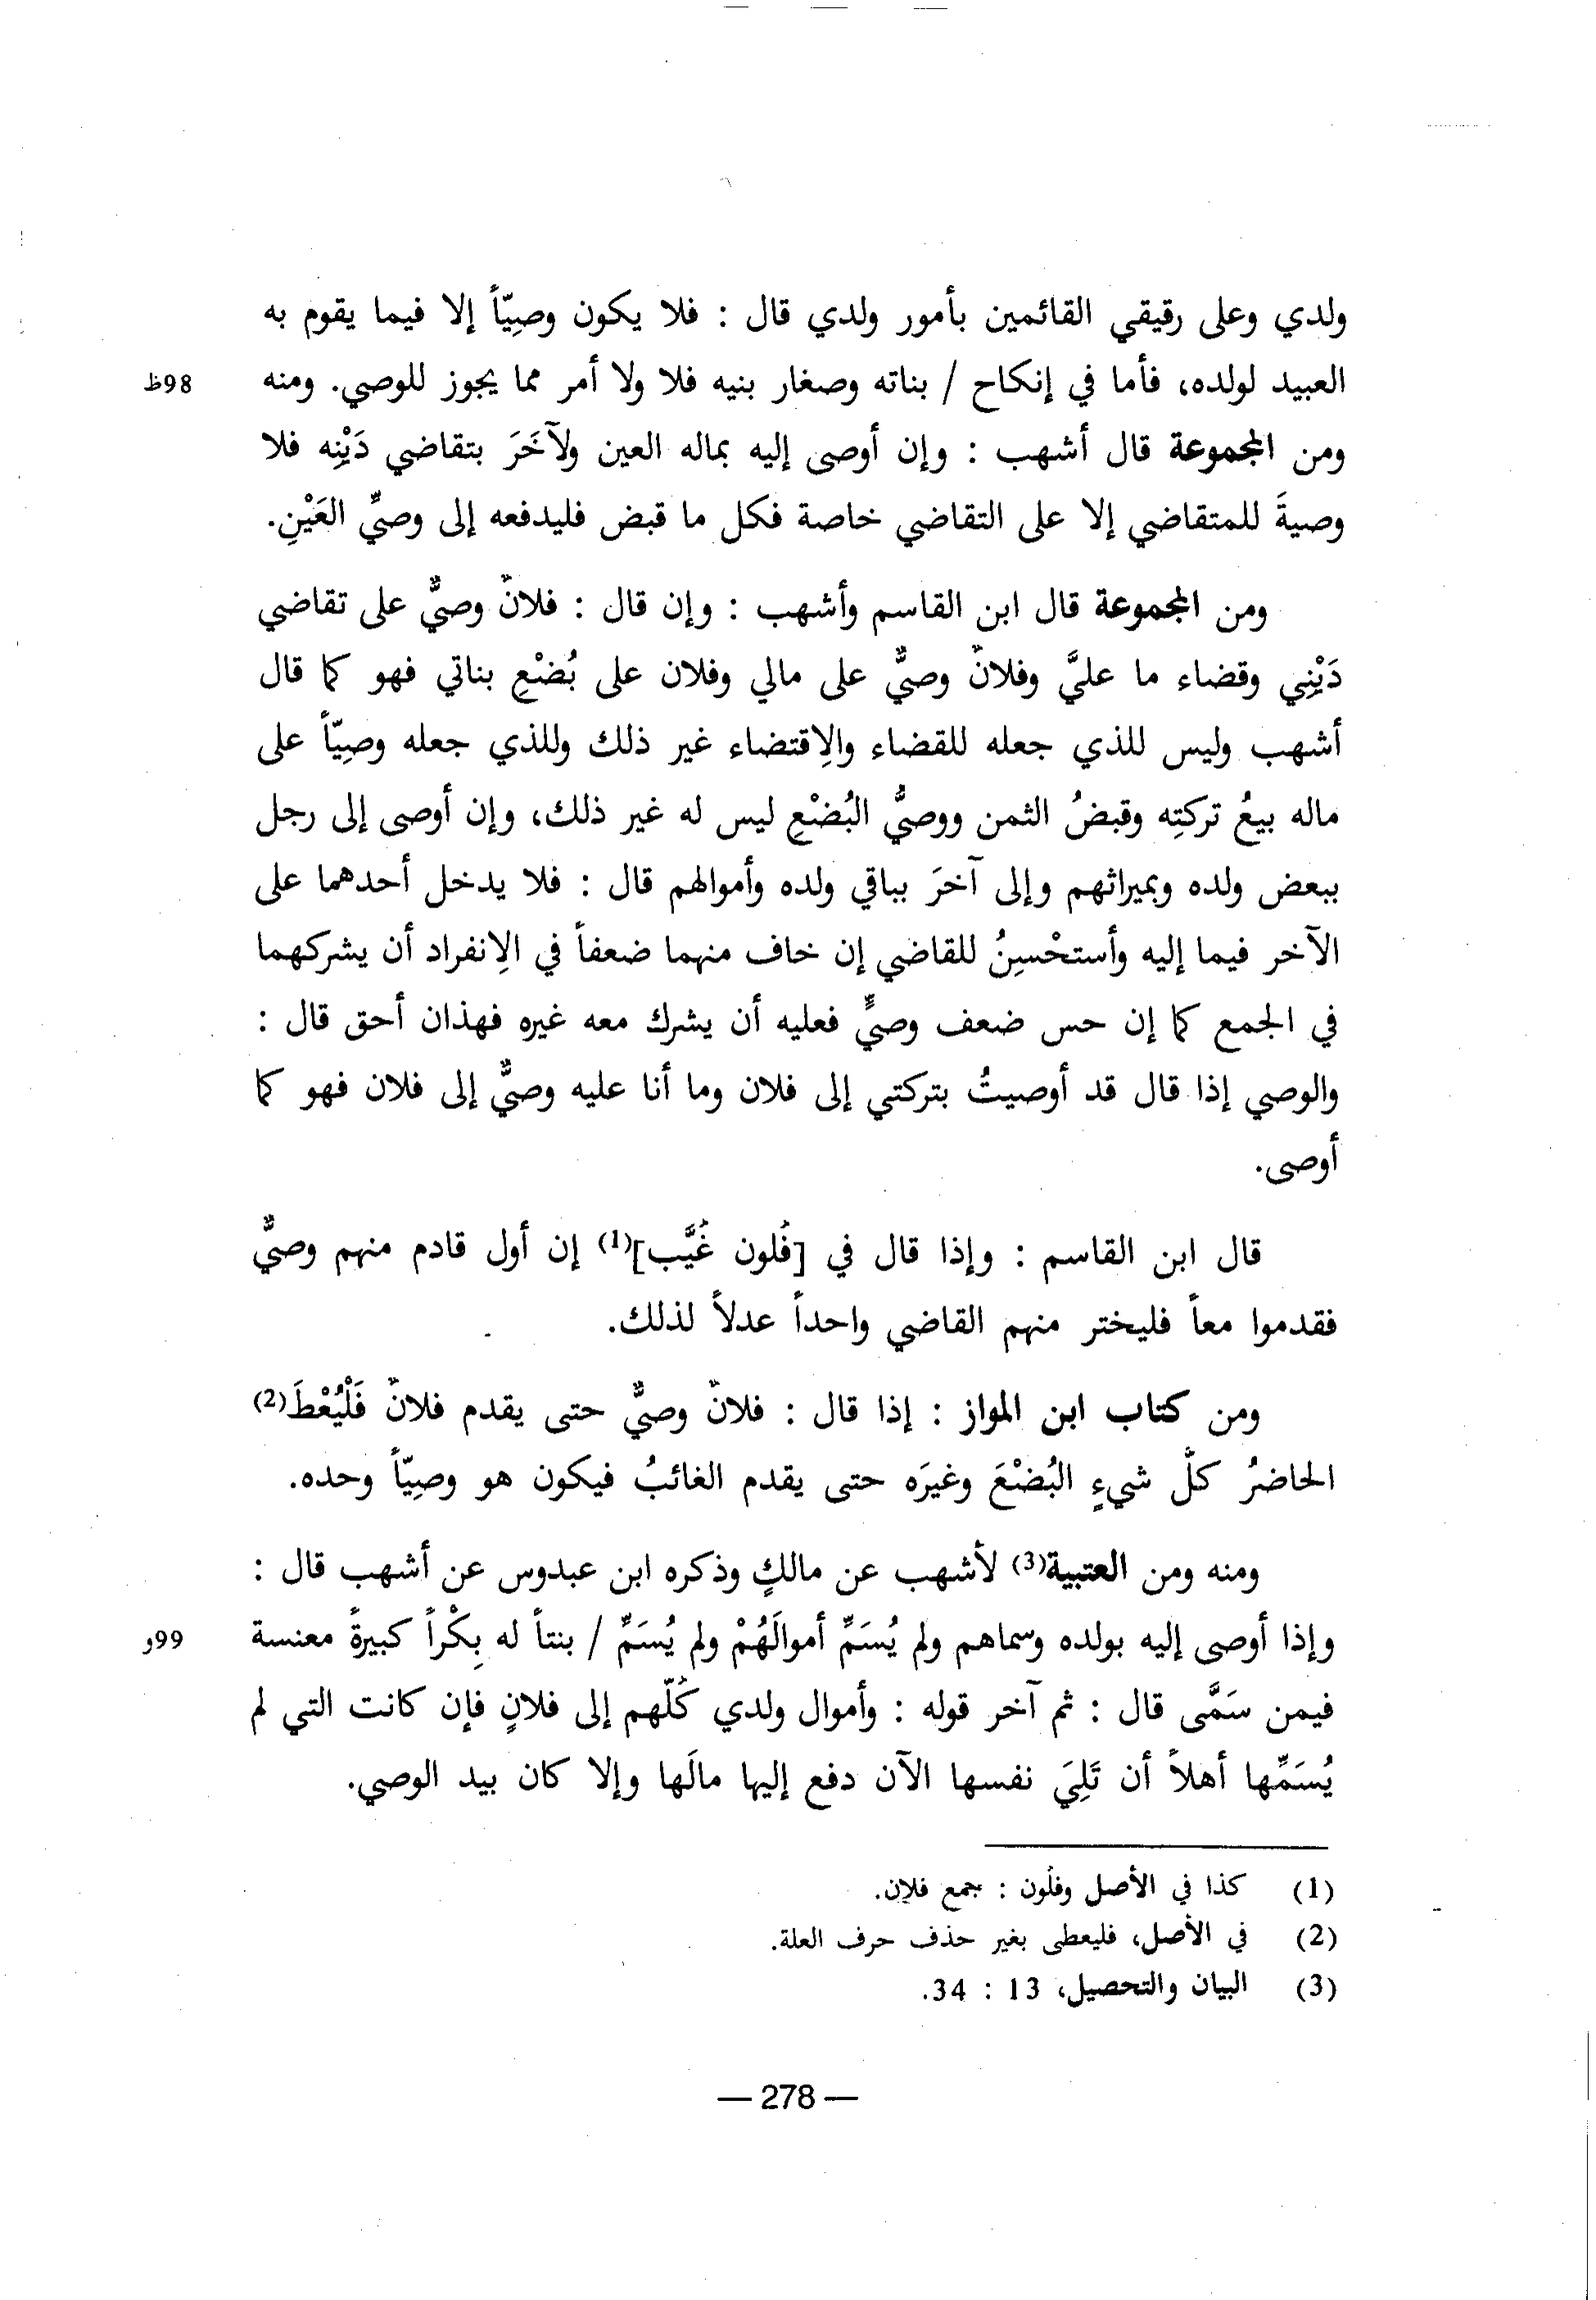 ولدي وعلى رقيقي القائمين بأمور ولدي قال : فلا يكون وصِيّاً إلا فيما يقوم به
العبيد لولده، فأما في إنكاح / بناته وصغار بنيه فلا ولا أمر مما يجوز للوصي. ومنه
98ظ
ومن المجموعة قال أشهب : وإن أوصى إليه بماله العين ولآخَرَ بتقاضي دَيْنِه فلا
وصيةَ للمتقاضي إلا على التقاضي خاصة فكل ما قبض فليدفعه إلى وصيِّ العَيْنِ.
ومن المجموعة قال ابن القاسم وأشهب : وإن قال : فلانٌ وصيٌّ على تقاضي
دَيْنِي وقضاء ما عليَّ وفلانٌ وصيٌّ على مالي وفلان على بُضْعِ بناتي فهو كما قال
أشهب وليس للذي جعله للقضاء والاِقتضاء غير ذلك وللذي جعله وصِيّاً على
ماله بيعُ تركتِه وقبضُ الثمن ووصيُّ البُضْعِ ليس له غير ذلك، وإن أوصى إلى رجل
ببعض ولده وبميراثهم وإلى آخرَ بباقي ولده وأموالهم قال : فلا يدخل أحدهما على
الآخر فيما إليه وأستحْسِنُ للقاضي إن خاف منهما ضعفاً في الاِنفراد أن يشركهما
في الجمع كما إن حس ضعف وصيٍّ فعليه أن يشرك معه غيره فهذان أحق قال :
والوصي إذا قال قد أوصيتُ بتركتي إلى فلان وما أنا عليه وصيٌّ إلى فلان فهو كما
أوصى.
قال ابن القاسم : وإذا قال في [فُلون غُيَّب](1) إن أول قادم منهم وصيٌّ
فقدموا معاً فليختر منهم القاضي واحداً عدلاً لذلك.
ومن كتاب ابن المواز : إذا قال : فلانٌ وصيٌّ حتى يقدم فلانٌ فَلْيُعْطَ(2)
الحاضرُ كلَّ شيءٍ البُضْعَ وغيرَه حتى يقدم الغائبُ فيكون هو وصِيّاً وحده.
ومنه ومن العتبية(3) لأشهب عن مالكٍ وذكره ابن عبدوس عن أشهب قال :
وإذا أوصى إليه بولده وسماهم ولم يُسَمِّ أموالَهُمْ ولم يُسَمِّ / بنتاً له بِكْراً كبيرةً معنسة
99و
فيمن سَمَّى قال : ثم آخر قوله : وأموال ولدي كُلّهم إلى فلانٍ فإن كانت التي لم
يُسَمِّها أهلاً أن تَلِيَ نفسها الآن دفع إليها مالَها وإلا كان بيد الوصي.
(1) كذا في الأصل وفلُون : جمع فلان.
(2) في الأصل، فليعطى بغير حذف حرف العلة.
(3) البيان والتحصيل، 13 : 34.
— 278 —